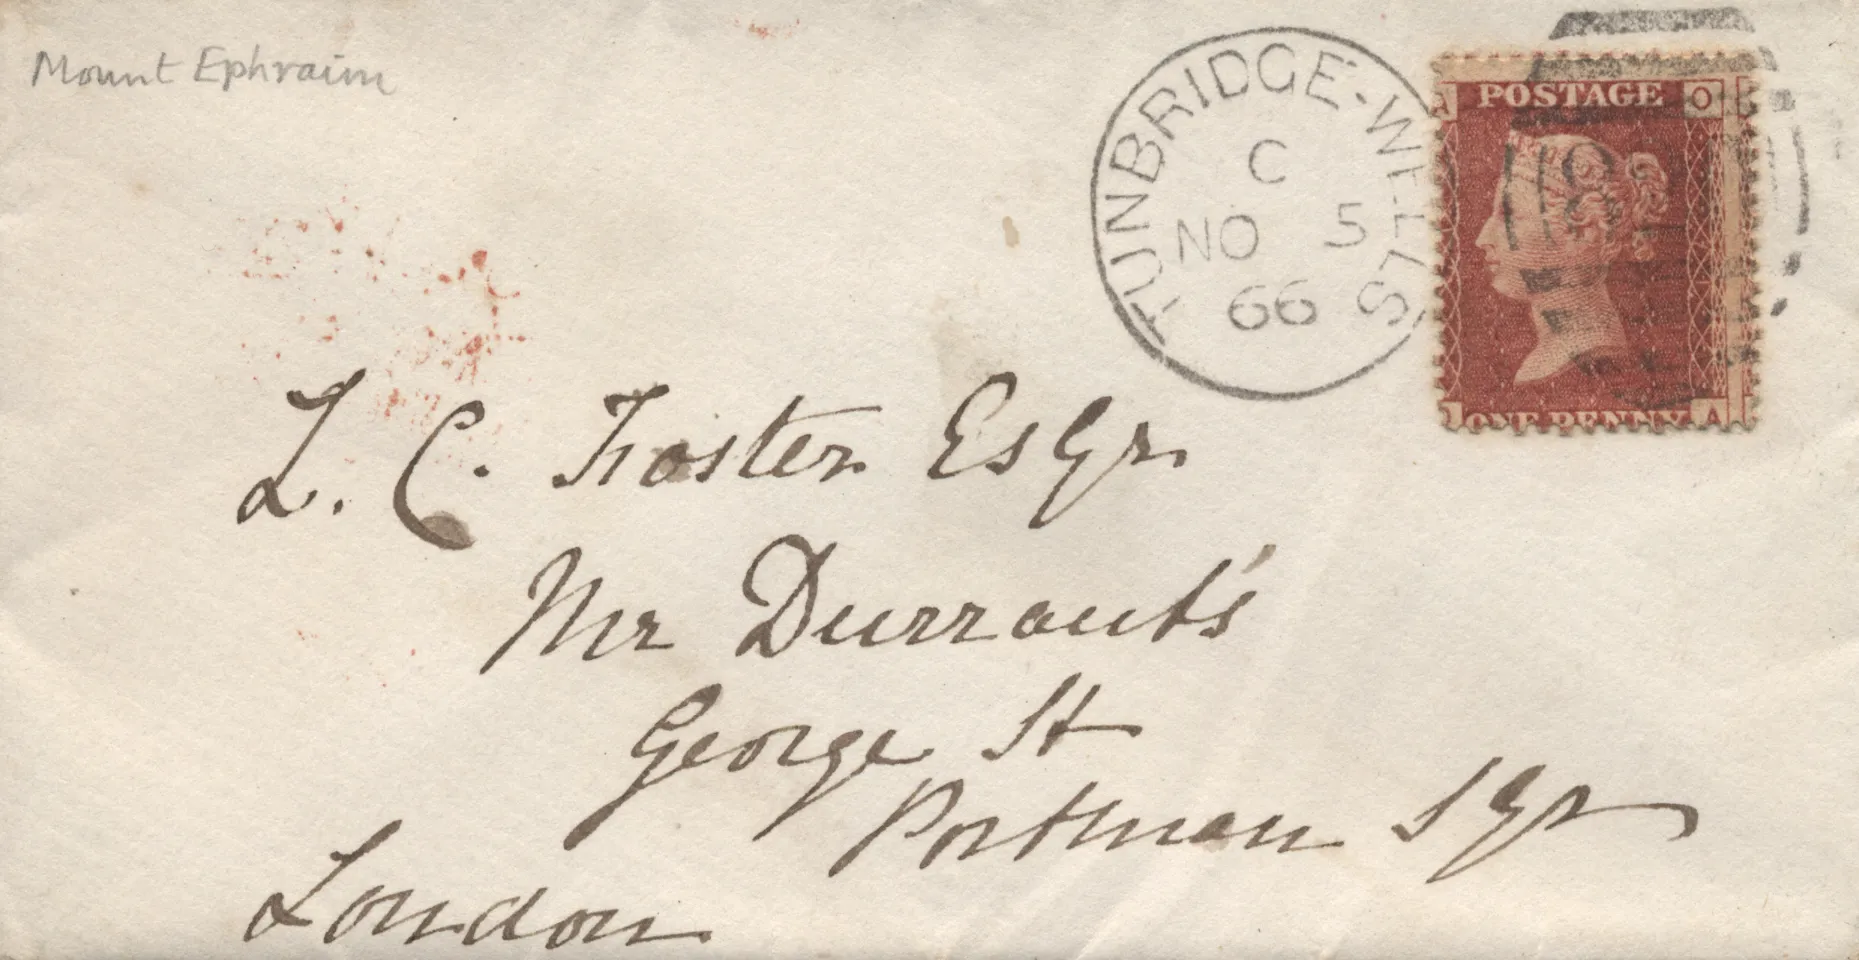 Mount Ephraim
TUNBRIDGE-WELLS
C
NO 5
66
A POSTAGE O
ONE PENNY A
L. C. Foster Esqr.
Mr Durrant's
George St
Portman Sqr
London